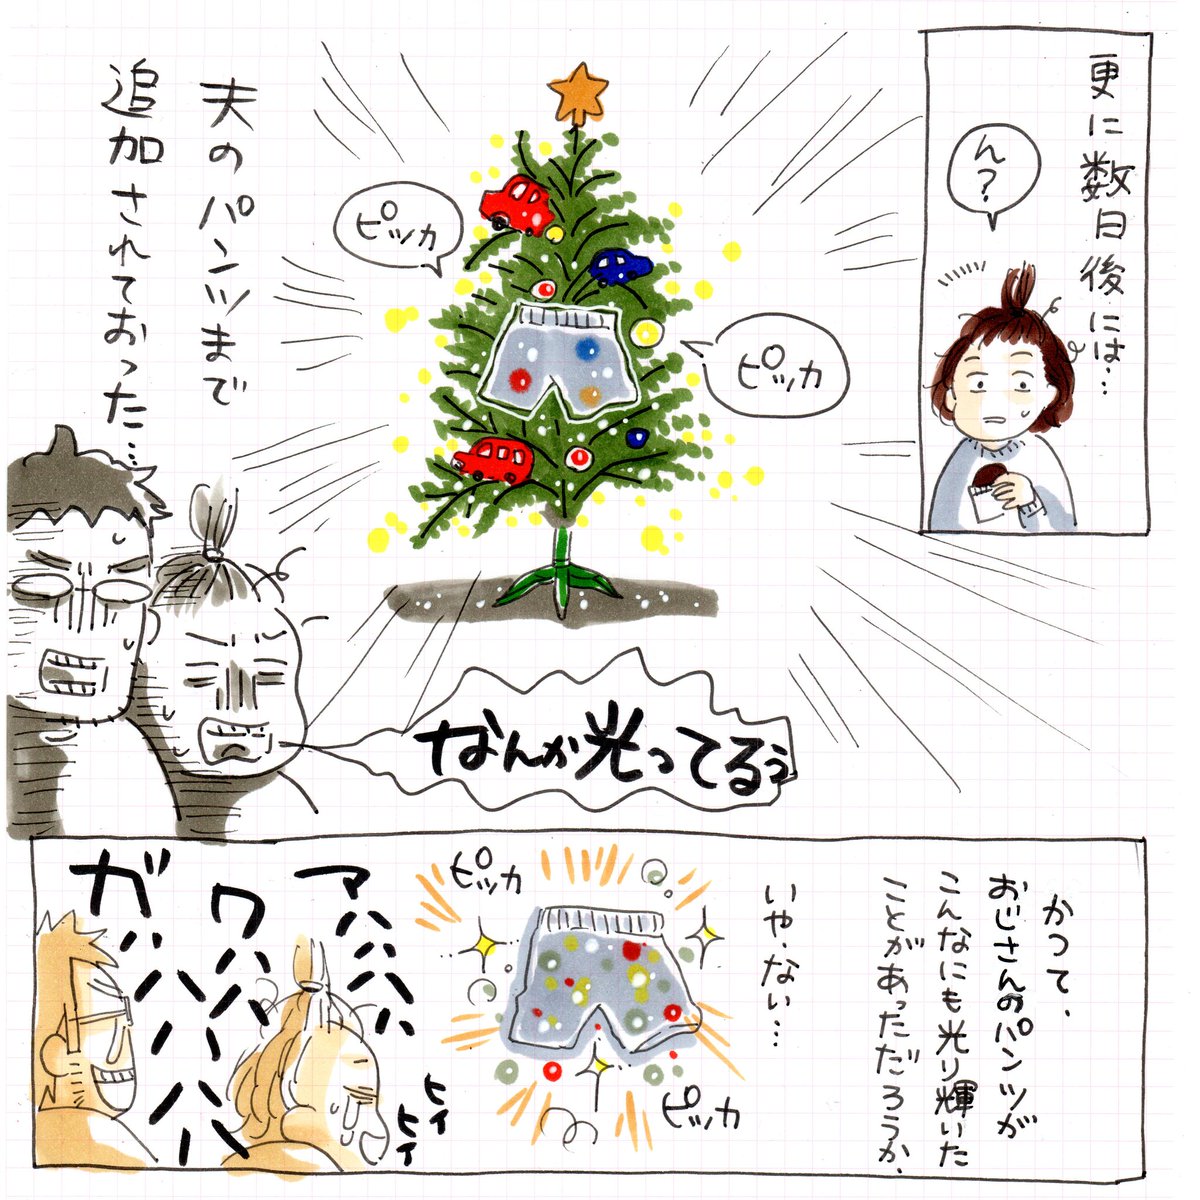 更に数日後には…
ん?
ピッカ
ピッカ
夫のパンツまで
追加されておった…
なんか光ってるぅ
かつて、
おじさんのパンツが
こんなにも光り輝いた
ことがあっただろうか、
いや・ない…
ピッカ
ピッカ
アハハハハ
ワハハハハ
ガハハハハハ
ヒィ
ヒィ